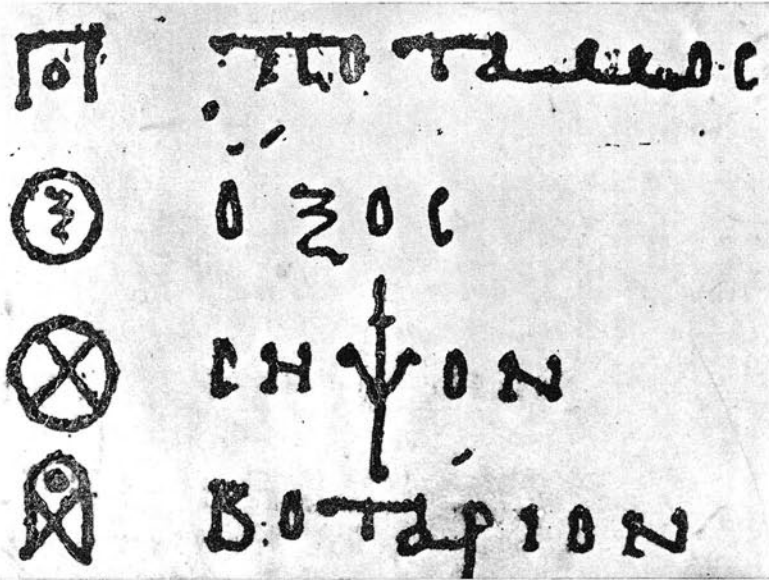 ποταμος
ὄξος
σηψον
βοτάριον